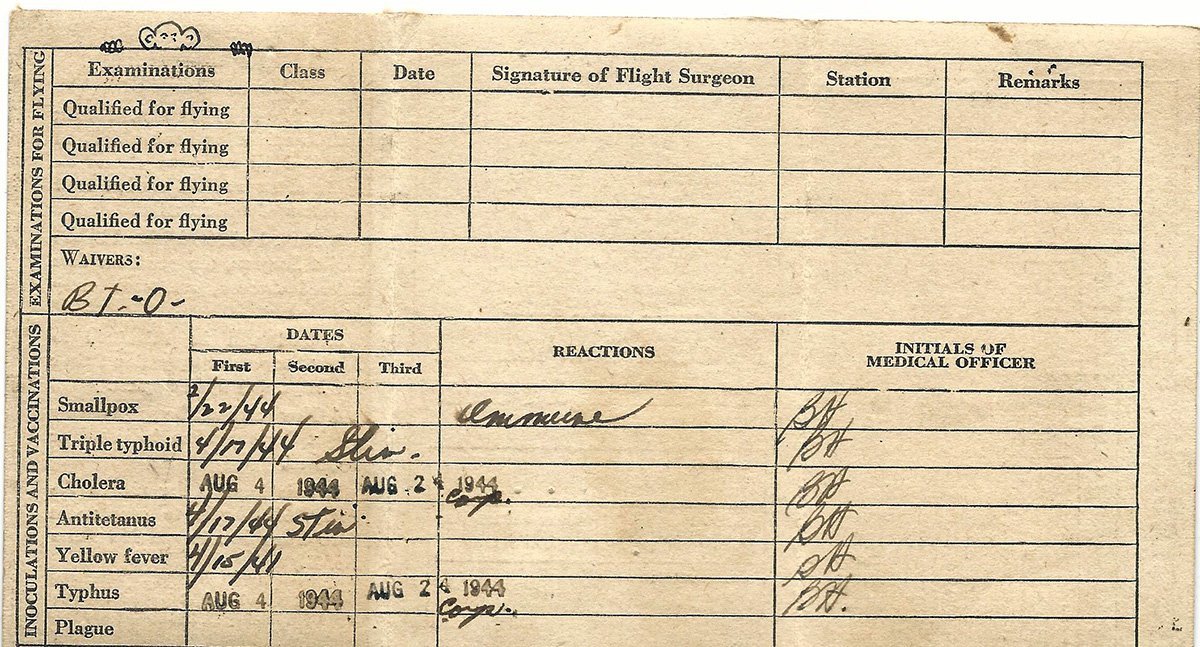 Examinations Class Date Signature of Flight Surgeon Station Remarks
Qualified for flying
Qualified for flying
Qualified for flying
Qualified for flying
EXAMINATIONS FOR FLYING
WAIVERS:
BT.-O-
INOCULATIONS AND VACCINATIONS
DATES REACTIONS INITIALS OF MEDICAL OFFICER
First Second Third
Smallpox 2/22/44 Immune BH
Triple typhoid 4/17/44 Stim. BH
Cholera AUG 4 1944 AUG 24 1944 BH
Antitetanus 4/17/44 Stim. BH
Yellow fever 4/15/41 BH
Typhus AUG 4 1944 AUG 24 1944 BH.
Plague